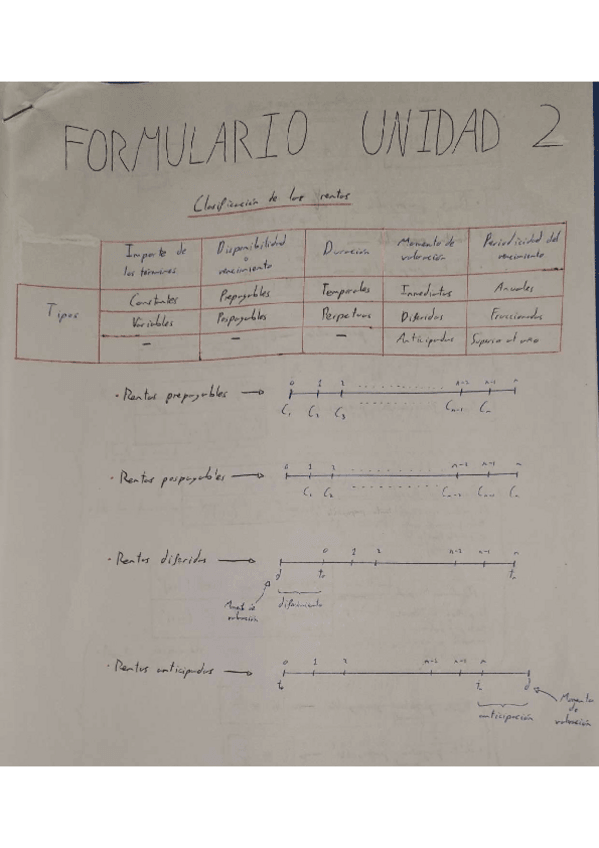 FORMULARIO UNIDAD 2
Clasificación de las rentas
Importe de los términos
Disponibilidad o vencimiento
Duración
Momento de valoración
Periodicidad del vencimiento
Tipos
Constantes Prepagables Temporales Inmediatas Anuales
Variables Pospagables Perpetuas Diferidas Fraccionadas
- - - Anticipadas Superior al año
· Rentas prepagables →
0 1 2 n-2 n-1 n
C1 C2 C3 Cn-1 Cn
· Rentas pospagables →
0 1 2 n-2 n-1 n
C1 C2 Cn-2 Cn-1 Cn
· Rentas diferidas →
0 1 2 n-2 n-1 n
d t0 tn
Mom. de valoración
diferimiento
· Rentas anticipadas →
0 1 2 n-2 n-1 n
t0 tn
anticipación
Momento de valoración